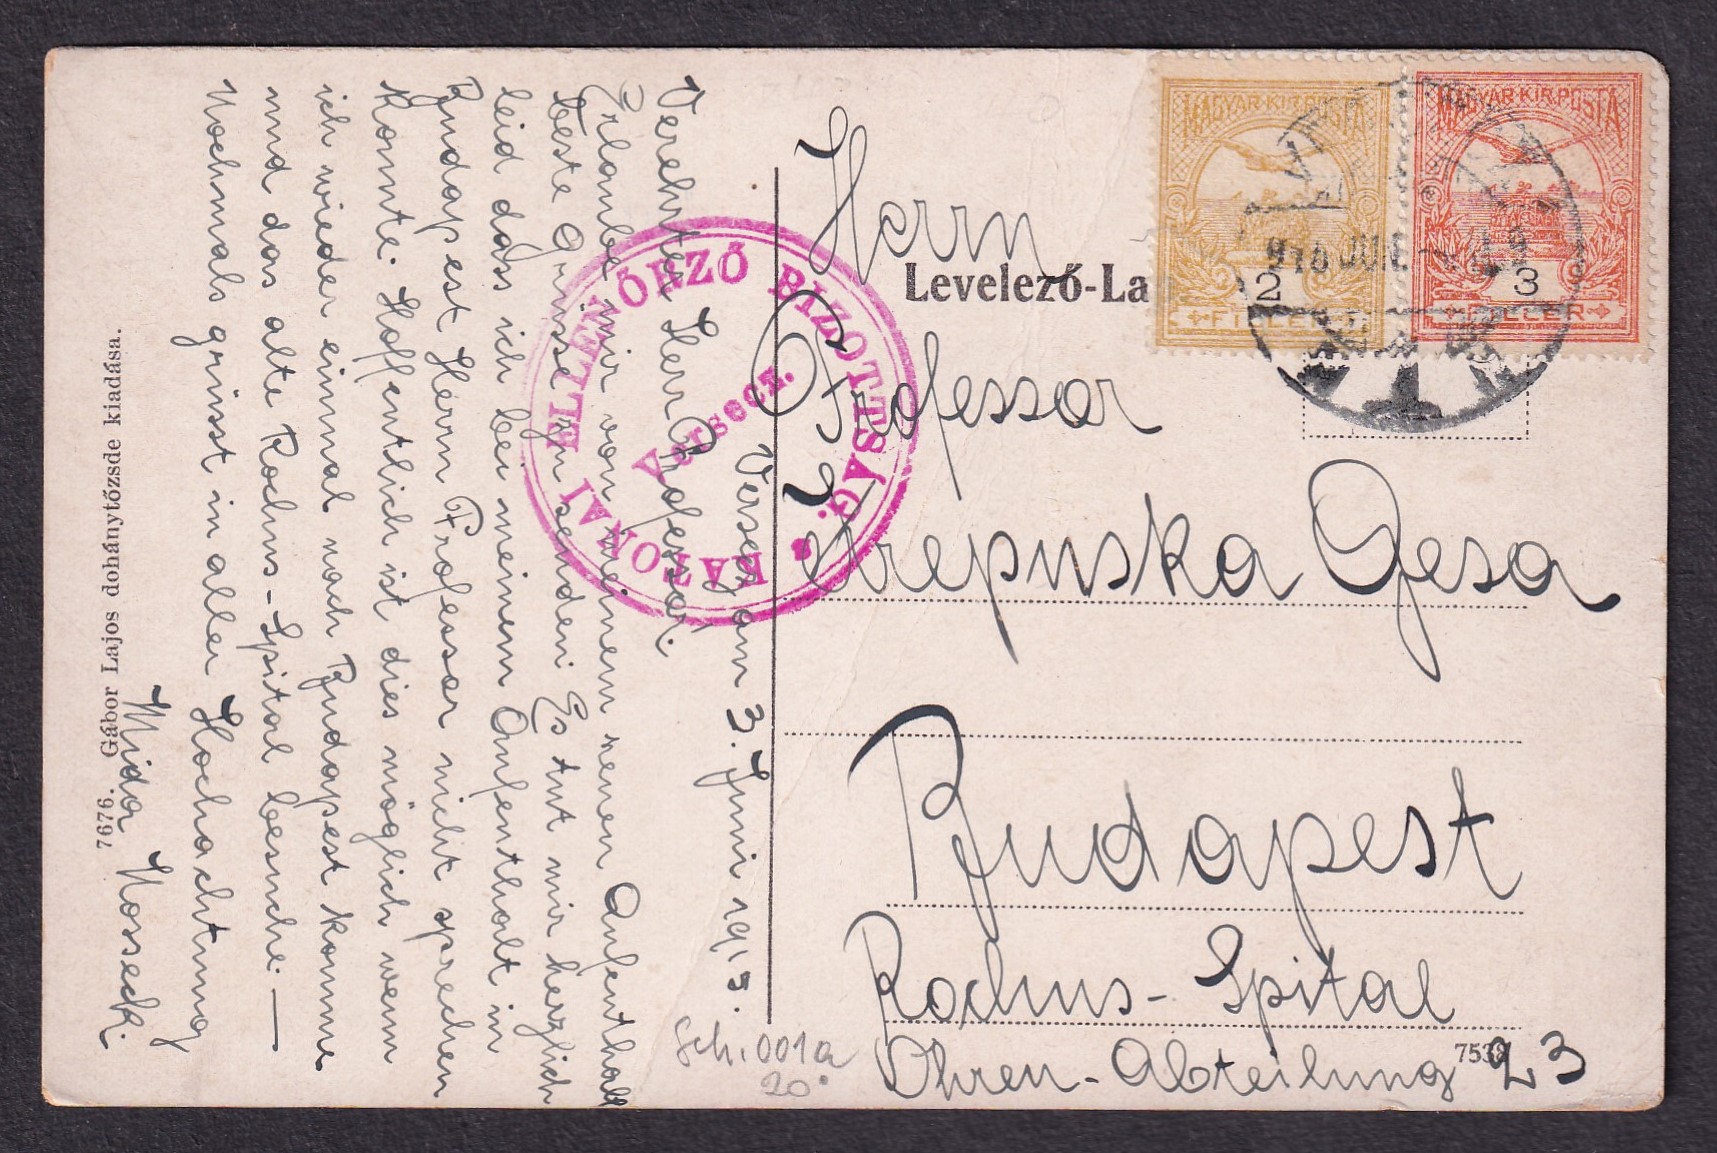 Versecz am 3. Juni 1915.
Verehrter Herr Professor.
Erlaube mir von meinem neuen Aufenthalt
beste Grüsse zu senden. Es tut mir herzlich
leid dass ich bei meinem Aufenthalt in
Budapest Herrn Professor nicht sprechen
konnte. Hoffentlich ist dies möglich wenn
ich wieder einmal nach Budapest komme
und das alte Rochus-Spital besuche. —
Nochmals grüsst in aller Hochachtung
Mida Nosseck.
7676. Gábor Lajos dohánytőzsde kiadása.
KATONAI ELLENŐRZŐ BIZOTTSÁG.
Versecz.
Levelező-La
MAGYAR KIR. POSTA
2
FILLER
MAGYAR KIR. POSTA
3
FILLER
916 JUL.
Herrn
Professor
Krepuska Gesa
Budapest
Rochus-Spital
Ohren-Abteilung
23
Sch. 001a
20